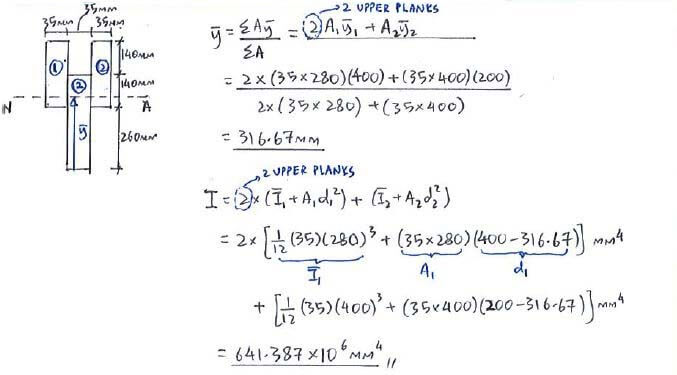 35mm
35mm 35mm
140mm
140mm
260mm
① ② ②
N A
ȳ
2 UPPER PLANKS
ȳ = ΣAȳ / ΣA = 2A₁ȳ₁ + A₂ȳ₂
= 2×(35×280)(400)+(35×400)(200) / 2×(35×280)+(35×400)
= 316.67mm
2 UPPER PLANKS
I = 2×(Ī₁+A₁d₁²) + (Ī₂+A₂d₂²)
= 2×[1/12 (35)(280)³ + (35×280)(400-316.67)] mm⁴
Ī₁ A₁ d₁
+ [1/12 (35)(400)³ + (35×400)(200-316.67)] mm⁴
= 641.387×10⁶ mm⁴ //